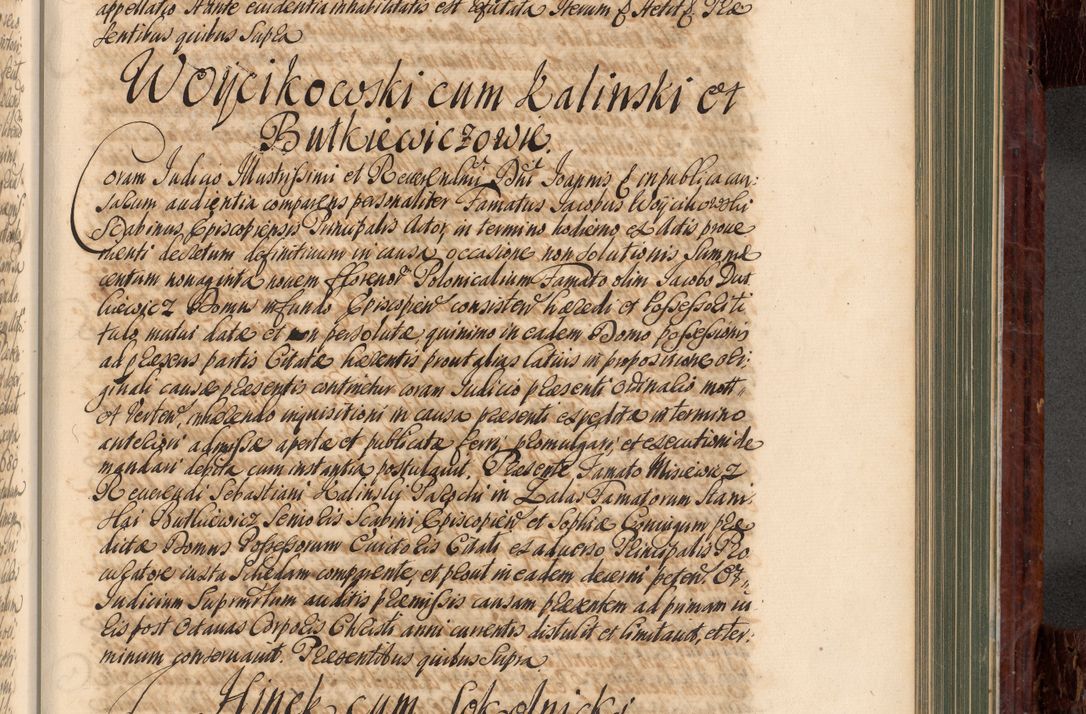 appellatio Ante euidentia inhabilitatis est refutata Iterum & Iterum & Præ
sentibus quibus Supra
Woÿcikowski cum Kalinski et
Butkiewiczowie.
Coram Iudicio Illustrissimi et Reuerendmi Dni Ioannis & in publica cau:
salium audientia comparens personaliter Famatus Iacobus Woycikowski
Scabinus Episcopiensis Principalis Actor, in termino hodierno ex Actis proue
nienti decretum definitiuum in causa occasione non solutionis Summæ
centum nonaginta nouem fflorenor Polonicalium Famato olim Iacobo But
kiewicz Domus in fundo Episcopien consisten hæredi et Possessori ti
tulo mutui datæ et non persolutæ, quinimo in eadem Domo possessionis
ad præsens partis Citatæ hærentis prout alias latius in propositione ori
ginali causæ præsentis continetur coram Iudicio præsenti Ordinario mott
et verten, inhærendo inquisitioni in causa præsenti expeditæ in termino
anteriori admissæ apertæ et publicatæ ferri, promulgari, et executioni de
mandari debita cum instantia postulauit. Præsente Famato Misiewicz
Reuerendi Sebastiani Kalinski Parochi in Zalas Famatorum Stani
slai Butkiewicz Senioris Scabini Episcopien et Sophiæ Coniugum præ
dictæ Domus Possessorum Euictoris Citati ex aduerso Principalis Pro
curatore iuxta Schedam comparente, et prout in eadem decerni peten. Et
Iudicium Suprmtum auditis præmissis causam præsentem ad primam iu
ris post Octauas Corporis Christi anni currentis distulit et limitauit, et ter:
minum conseruauit. Præsentibus quibus Supra
Hinek cum Sokolnicki